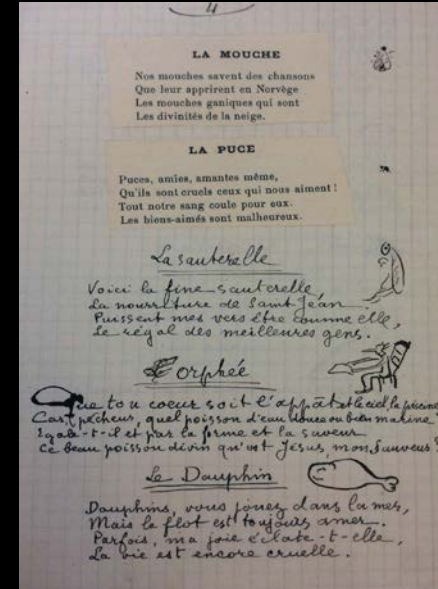 4
LA MOUCHE
Nos mouches savent des chansons
Que leur apprirent en Norvège
Les mouches ganiques qui sont
Les divinités de la neige.
LA PUCE
Puces, amies, amantes même,
Qu'ils sont cruels ceux qui nous aiment !
Tout notre sang coule pour eux.
Les biens-aimés sont malheureux.
La sauterelle
Voici la fine sauterelle,
La nourriture de Saint Jean.
Puissent mes vers être comme elle,
Le régal des meilleures gens.
Orphée
Que ton coeur soit l'appât et le ciel, la piscine
Car, pécheur, quel poisson d'eau douce ou bien marine
Egale-t-il et par la forme et la saveur
Ce beau poisson divin qu'est Jésus, mon Sauveur ?
Le Dauphin
Dauphins, vous jouez dans la mer,
Mais le flot est toujours amer.
Parfois, ma joie éclate-t-elle,
La vie est encore cruelle.